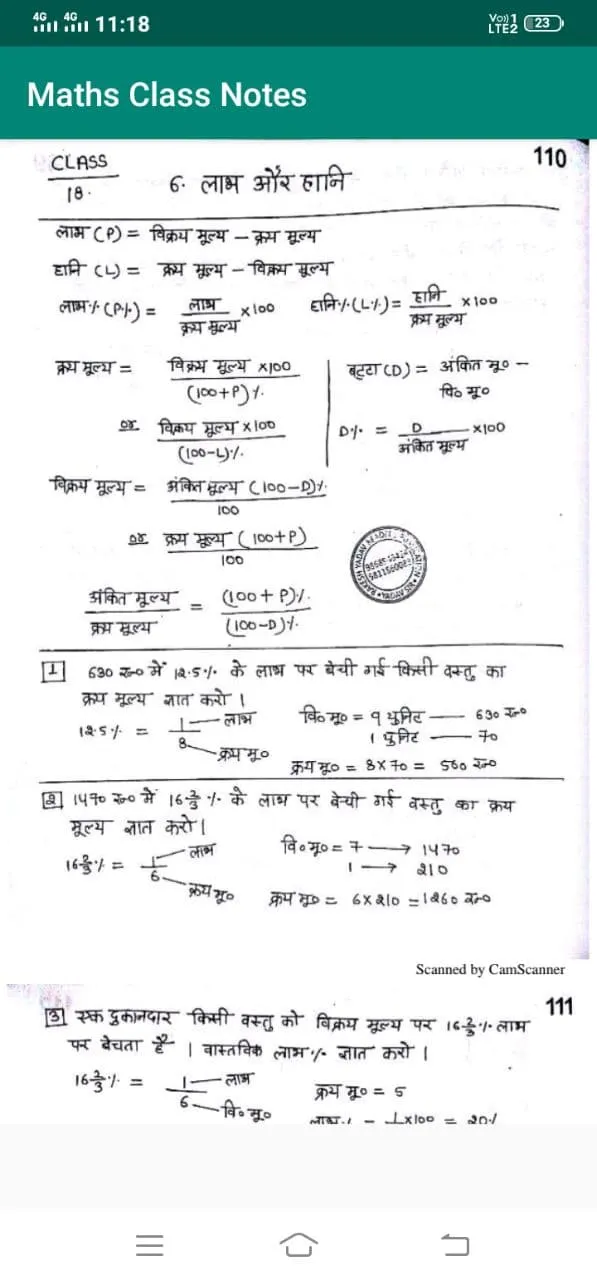 4G 4G 11:18 Vo)) 1 LTE2 23
Maths Class Notes
CLASS 18.
6. लाभ और हानि
110
लाभ (P) = विक्रय मूल्य – क्रय मूल्य
हानि (L) = क्रय मूल्य – विक्रय मूल्य
लाभ% (P%) = लाभ / क्रय मूल्य ×100 हानि% (L%) = हानि / क्रय मूल्य ×100
क्रय मूल्य = विक्रय मूल्य ×100 / (100+P)%
or विक्रय मूल्य ×100 / (100-L)%
बट्टा (D) = अंकित मू० –
वि० मू०
D% = D / अंकित मूल्य ×100
विक्रय मूल्य = अंकित मूल्य (100-D)% / 100
or क्रय मूल्य (100+P) / 100
अंकित मूल्य / क्रय मूल्य = (100+P)% / (100-D)%
1 630 रू० में 12.5% के लाभ पर बेची गई किसी वस्तु का
क्रय मूल्य ज्ञात करो ।
12.5% = 1 / 8 लाभ क्रय मू०
वि० मू० = 9 युनिट — 630 रू०
1 युनिट — 70
क्रय मू० = 8×70 = 560 रू०
2 1470 रू० में 16 2/3 % के लाभ पर बेची गई वस्तु का क्रय
मूल्य ज्ञात करो ।
16 2/3 % = 1 / 6 लाभ क्रय मू०
वि० मू० = 7 → 1470
1 → 210
क्रय मू० = 6×210 = 1260 रू०
Scanned by CamScanner
111
3 एक दुकानदार किसी वस्तु को विक्रय मूल्य पर 16 2/3 % लाभ
पर बेचता है । वास्तविक लाभ% ज्ञात करो ।
16 2/3 % = 1 / 6 लाभ वि० मू०
क्रय मू० = 5
लाभ% = 1×100 = 20%